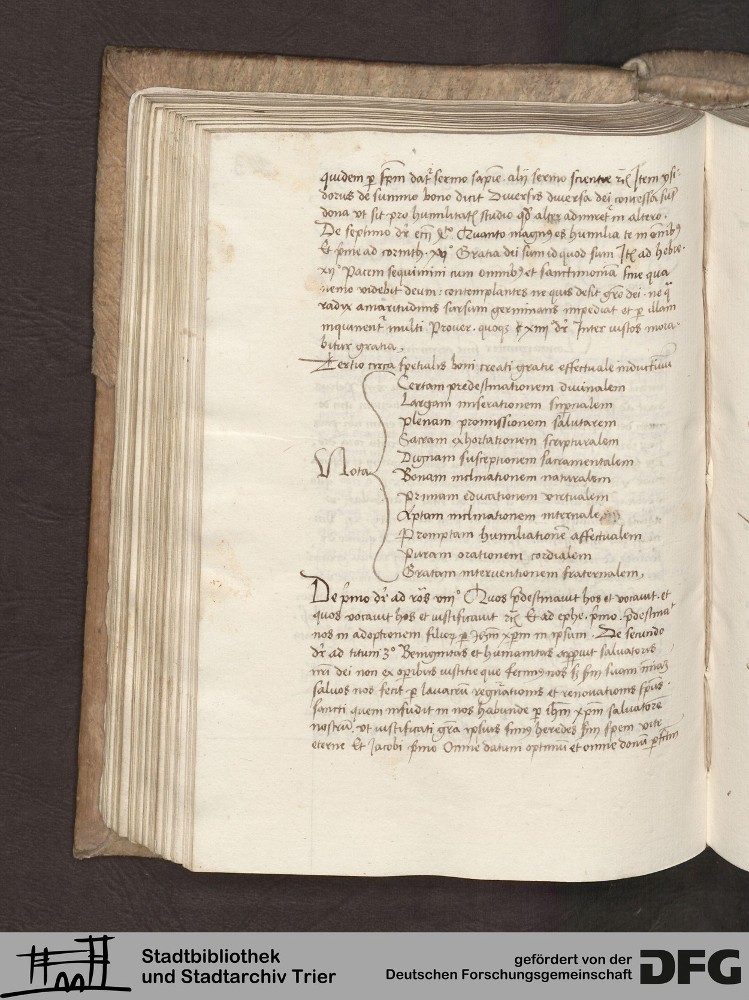 quidem p spm dat sermo sapie . alij sermo scientie rc Item ysi-
dorus de summo bono dicit Diversis diversa dei concessa sut
dona ut sit pro humilitatis studio qd alter admiret in altero .
De septimo dr ecci Quanto magnus es humilia te in omibus
Et pme ad corinth . xv Gratia dei sum id quod sum It ad hebre .
xij Pacem sequimini cum omnibus et sanctimonia sine qua
nemo videbit deum : contemplantes ne quis desit gre dei . ne q
radix amaritudinis sursum germinans impediat et p illam
inquinent multi Prover . quoq xiiij dr Inter iustos mora-
bitur gratia .
Tertio circa spetialis boni creati gratie effectuale inductiuu
Certam predestinationem diuinalem
Largam miserationem supnalem
Plenam promissionem salutarem
Sacram exhortationem scripturalem
Dignam susceptionem sacramentalem
Nota
Bonam inclinationem naturalem
Primam educationem virtualem
Aptam inclinationem internalem
Promptam humiliatione affectualem
Puram orationem cordialem
Gratam interventionem fraternalem ,
De pmo dr ad ros viij Quos pdestinavit hos et vocavit . et
quos vocavit hos et iustificavit rc Et ad ephe . pmo . pdestinavit
nos in adoptionem filiorum p ihm xpm in ipsum . De secundo
dr ad titum 3º Benignitas et humanitas apparuit salvatoris
nri dei non ex operibus iustitie que fecimus nos sed scdm suam miam
salvos nos fecit p lavacru regnationis et renovationis spus
sancti quem infudit in nos habunde p ihm xpm salvatore
nostru . ut iustificati gra ipsius simus heredes scdm spem vite
eterne Et Jacobi pmo Omne datum optimu et omne donu pfectm
Stadtbibliothek
und Stadtarchiv Trier
gefördert von der
Deutschen Forschungsgemeinschaft
DFG